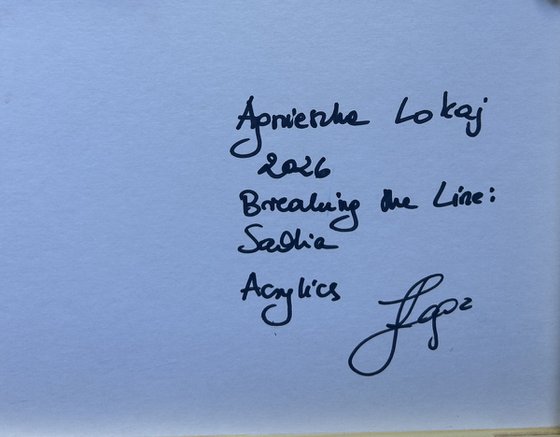 Agnieszka Lokaj
2026
Breaking the Line:
Sasha
Acrylics